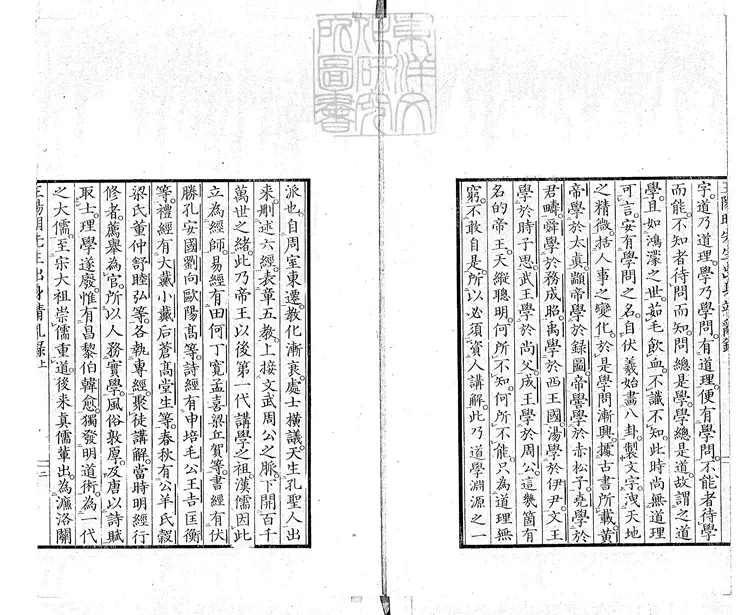 王陽明先生出身靖亂錄
字道乃道理學乃學問有道理便有學問不能者待學
而能不知者待問而知問總是學學總是道故謂之道
學且如鴻濛之世茹毛飲血不識不知此時尚無道理
可言安有學問之名自伏羲始畫八卦製文字洩天地
之精微括人事之變化於是學問漸興據古書所載黄
帝學於太真顓帝學於錄圖帝嚳學於赤松子堯學於
君疇舜學於務成昭禹學於西王國湯學於伊尹文王
學於時子思武王學於尚父成王學於周公這幾箇有
名的帝王天縱聰明何所不知何所不能只為道理無
窮不敢自是所以必須資人講解此乃道學淵源之一
派也自周室東遷教化漸衰處士橫議天生孔聖人出
来刪述六經表章五教上接文武周公之脈下開百千
萬世之緒此乃帝王以後第一代講學之祖漢儒因此
立為經師易經有田何丁寛孟喜梁丘賀等書經有伏
勝孔安國劉向歐陽髙等詩經有申培毛公王吉匡衡
等禮經有大戴小戴后蒼髙堂生等春秋有公羊氏穀
梁氏董仲舒眭弘等各執專經聚徒講解當時明經行
修者薦舉為官所以人務實學風俗敦厚及唐以詩賦
取士理學遂廢惟有昌黎伯韓愈獨發明道術為一代
之大儒至宗大祖崇儒重道後来真儒輩出為濂洛關
王陽明先生出身靖亂錄 上
二
東洋文化研究所圖書